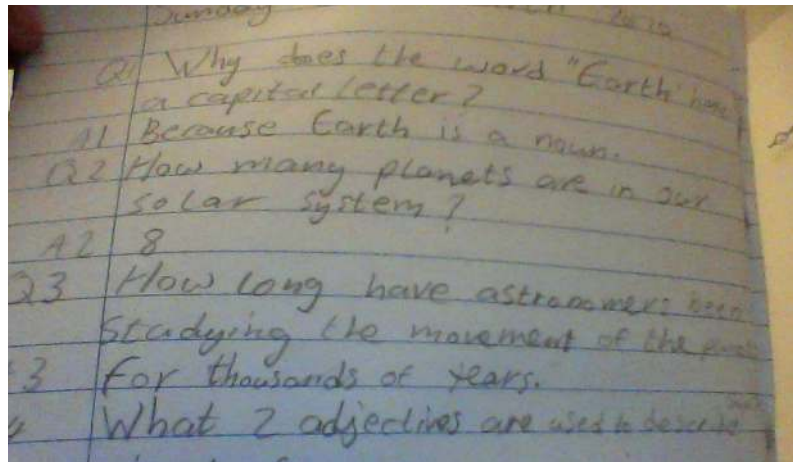 Sunday
Q1 Why does the word "Earth" have
a capital letter?
A1 Because Earth is a noun.
Q2 How many planets are in our
solar system?
A2 8
Q3 How long have astronomers been
studying the movement of the
3 for thousands of years.
What 2 adjectives are used to describe